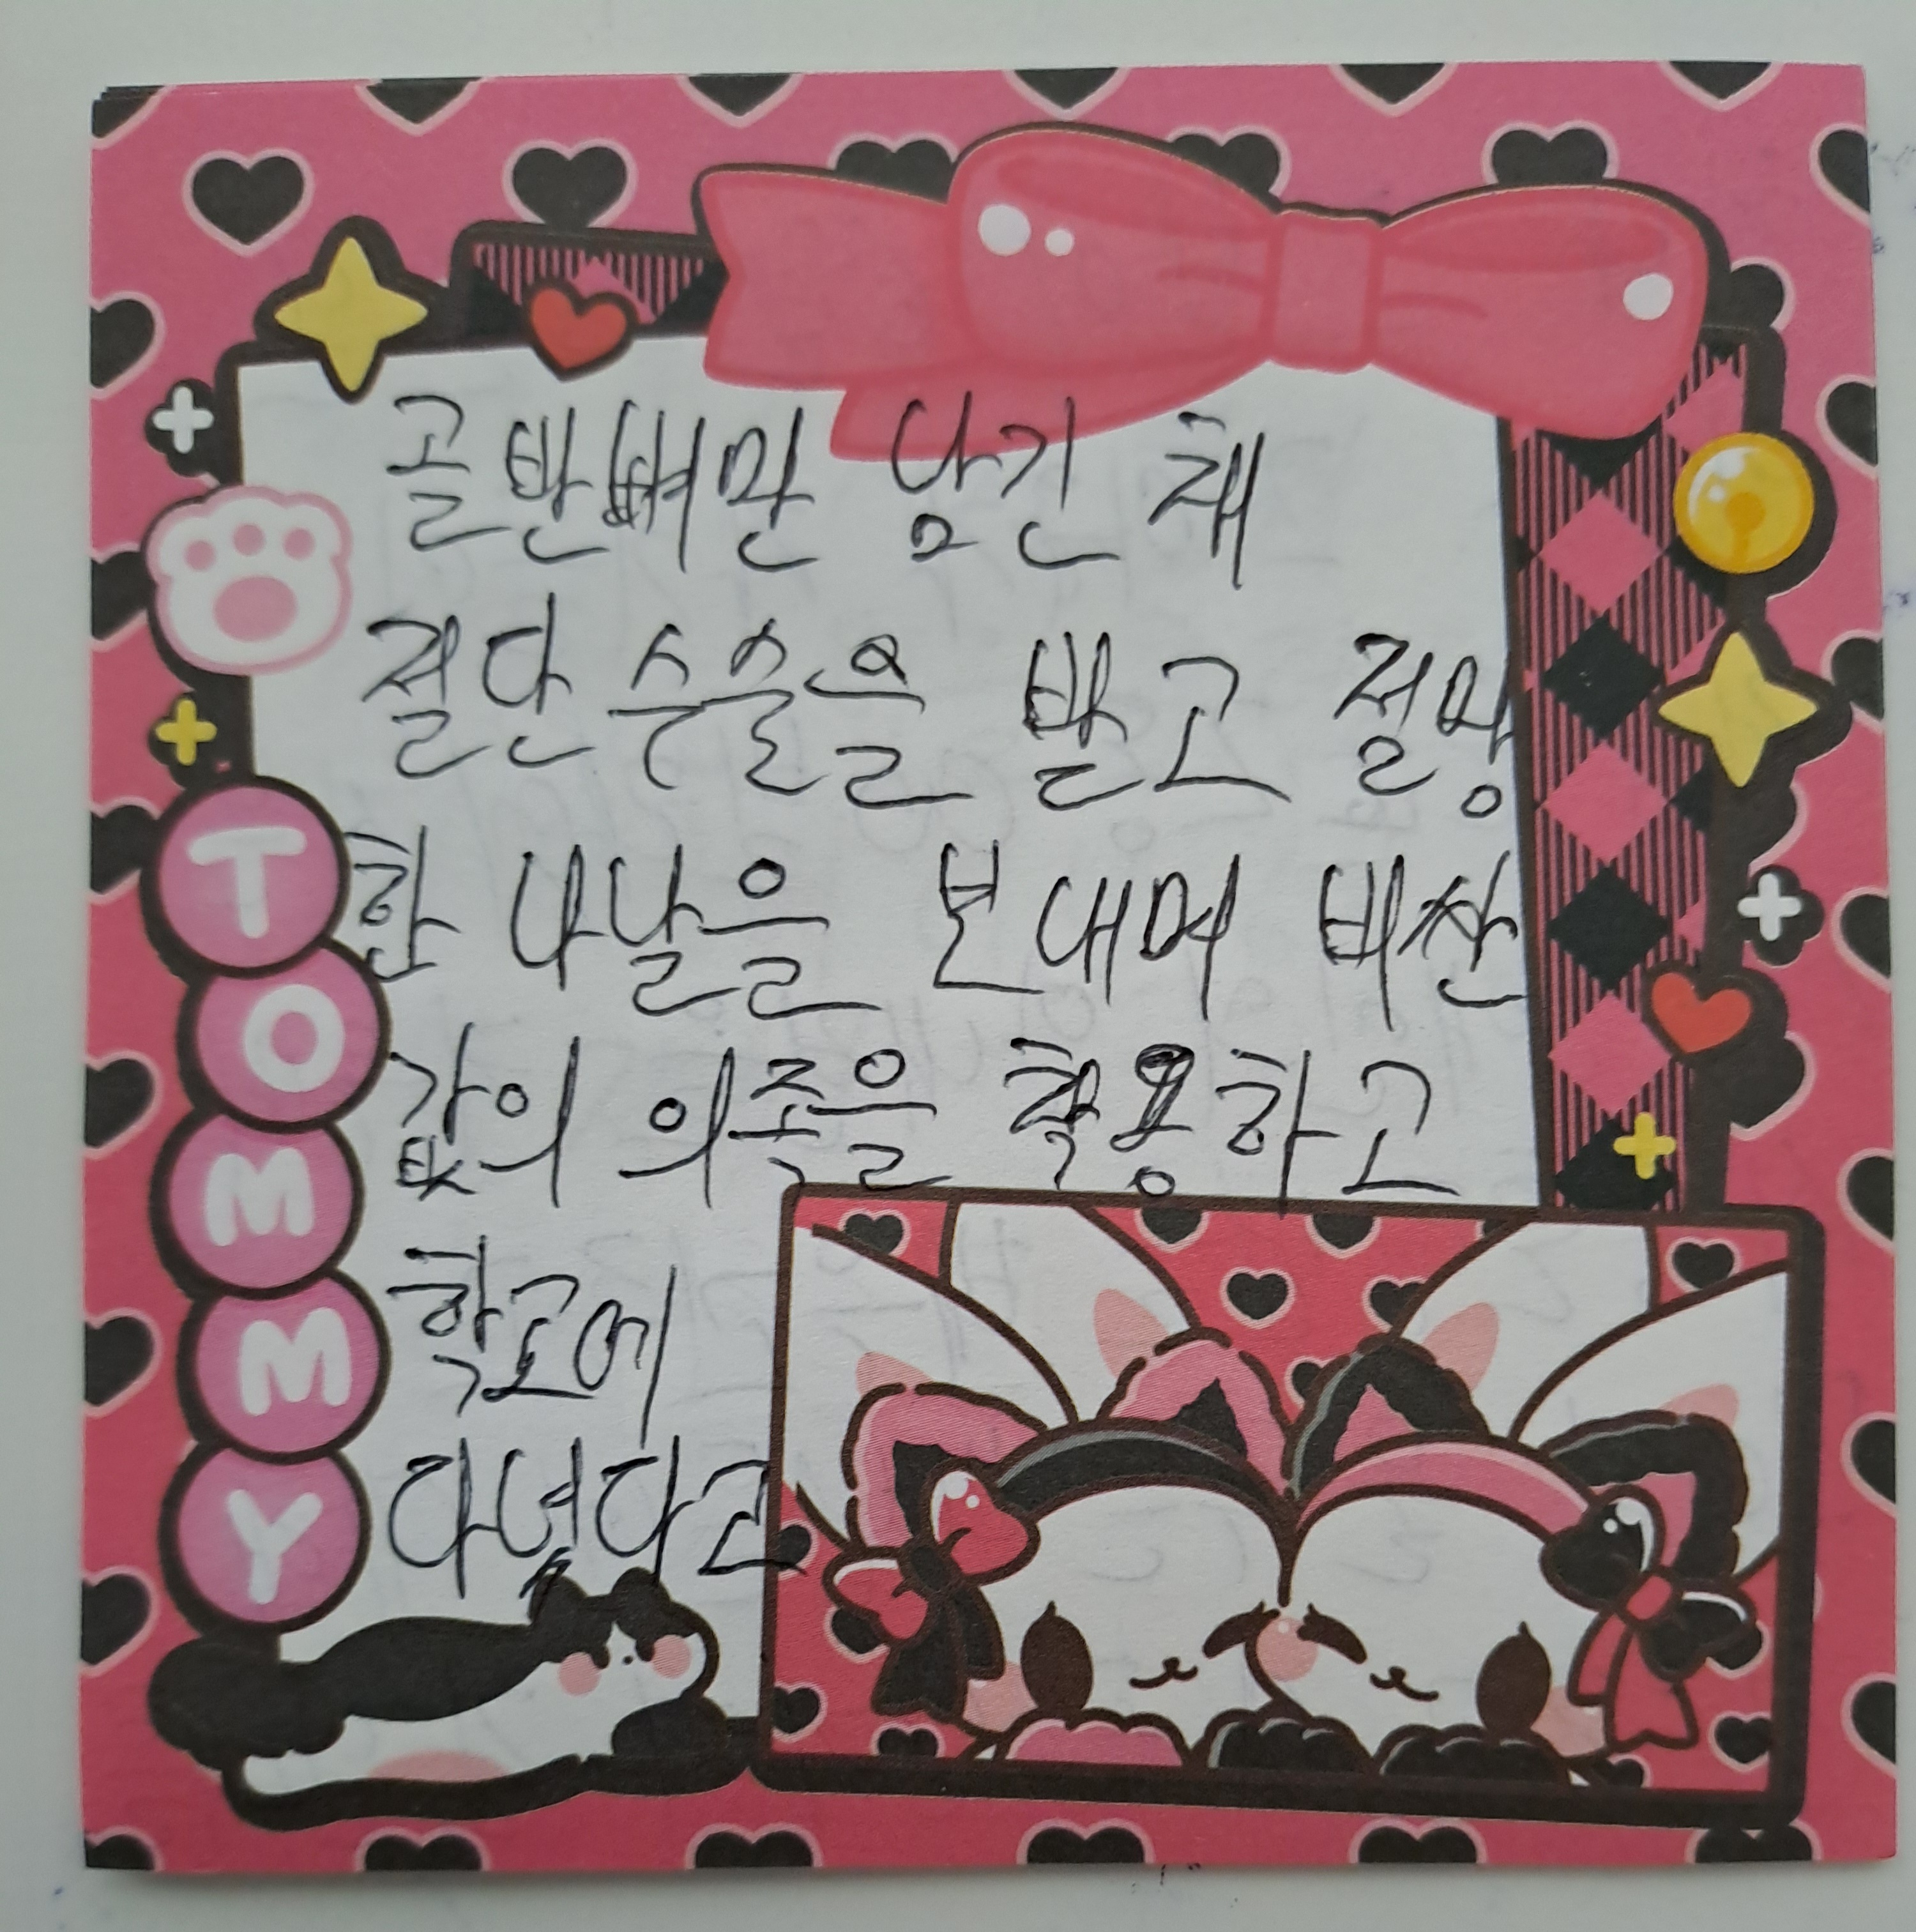 골반뼈만 남긴 채
절단 수술을 받고 절망
한 나날을 보내며 비싼
값의 의족을 착용하고
학교에
다녔다고
TOMMY